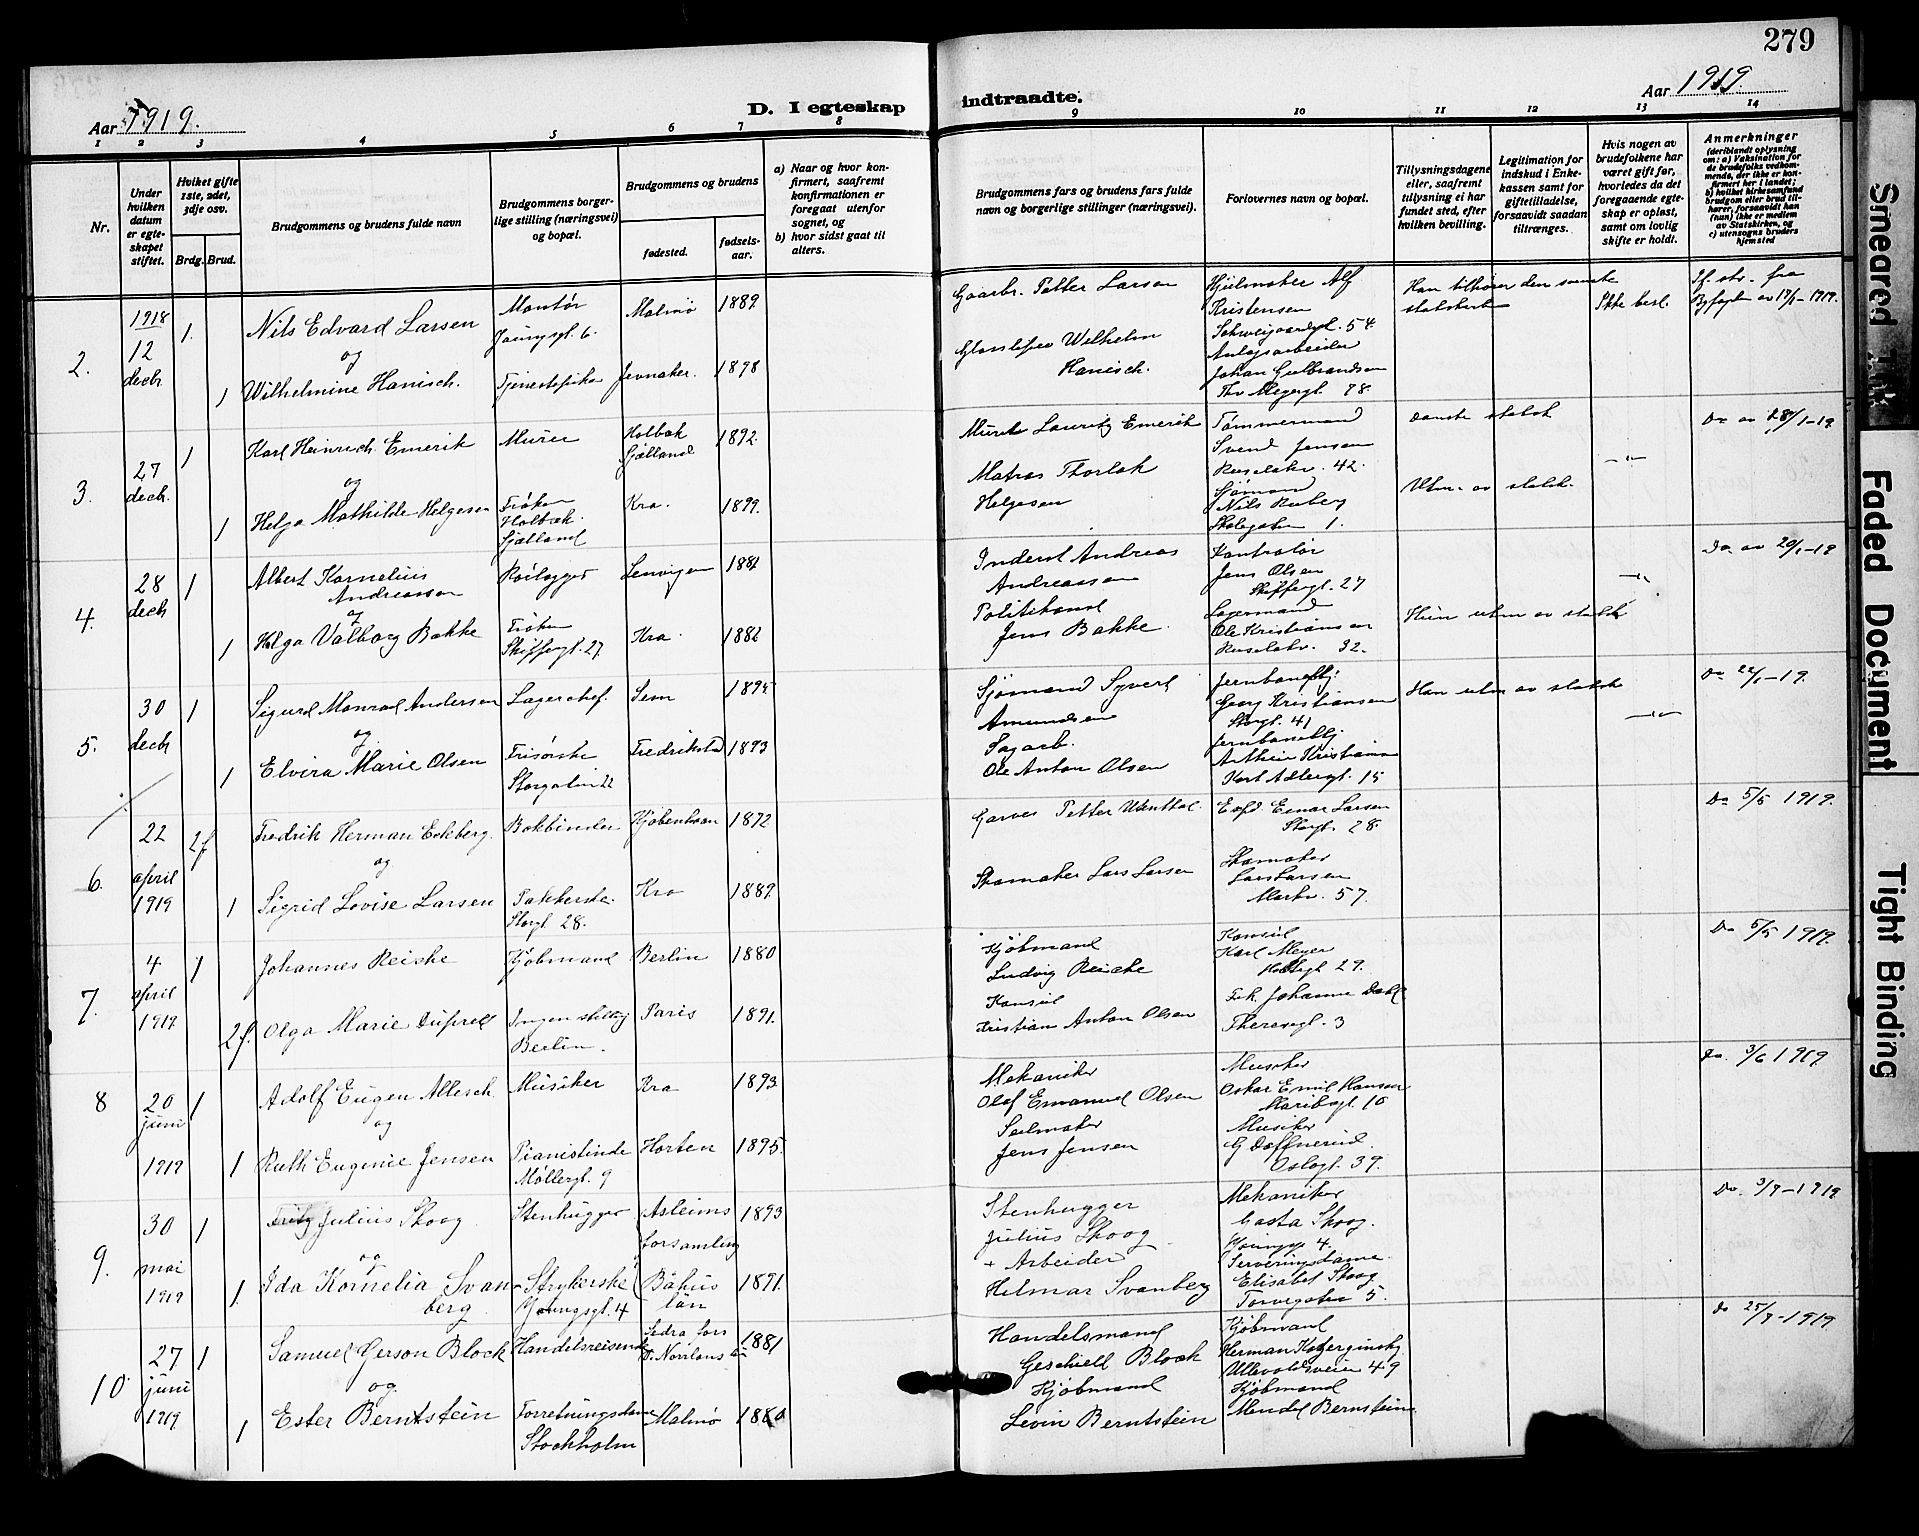 279
Aar 1919.
D. I egteskap
indtraadte.
Aar 1919.
1 2 3 4 5 6 7 8
9 10 11 12 13 14
Nr.
Under hvilken datum er egteskapet stiftet.
Hviket gifte 1ste, 2det, 3dje osv.
Brdg. Brud.
Brudgommens og brudens fulde navn
Brudgommens borgerlige stilling (næringsvei) og bopæl.
Brudgommens og brudens
fødested.
fødselsaar.
a) Naar og hvor konfirmert, saafremt konfirmationen er foregaat utenfor sognet, og
b) hvor sidst gaat til alters.
Brudgommens fars og brudens fars fulde navn og borgerlige stillinger (næringsvei).
Forlovernes navn og bopæl.
Tillysningsdagene eller, saafremt tillysning ei har fundet sted, efter hvilken bevilling.
Legitimation for indskud i Enkekassen samt for giftetilladelse, forsaavidt saadan tiltrænges.
Hvis nogen av brudefolkene har været gift før, hvorledes da det foregaaende egteskap er opløst, samt om lovlig skifte er holdt.
Anmerkninger
(deriblandt oplysning om: a) Vaksination for de brudefolks vedkommende, der ikke er konfirmert her i landet; b) hvilket kirkesamfund brudgom eller brud tilhører, forsaavidt han (hun) ikke er medlem av Statskirken, og c) utensogns bruders hjemsted
2.
1918
12
decbr.
1.
Nils Edvard Larsen
og
1
Wilhelmine Hanisch.
Montør
Youngsgt. 6.
Tjenestepike
Malmø
1889
Jevnaker.
1898
Gaarbr. Petter Larsen
Wilhelm
Hanisch.
Hjulmaker Alf
Kristensen
Schweigaardsgt. 54.
Anlæsarbeider
Johan Gulbrandsen
Thv Meyersgt. 78.
Han tilhører den svenske
statskirke
Ikke besl.
If. utr. fra
Byfogden av 17/1-1919.
3.
27
decbr.
1
Karl Heinrich Emerik
og
1
Helga Mathilde Helgesen
Murer
Frøken
Holbæk.
Sjælland
Holbæk
Sjælland
1892.
Kra.
1899.
Murer Lauritz Emerik
Matros Thorlak
Helgesen
Tømmermand
Svend Jensen
Ruseløkv. 42.
Sjømand
Nils Ruberg
Skolegaten 1.
Danske statsk
Utm. av statsk.
Do av 28/1-19.
4.
28
decb
1
Albert Kornelius
Andreassen
og
1
Helga Valborg Bakke
Rørlægger
Frøken
Skippergt. 27
Lenvigen
1881
Kra.
1882
Inderst Andreas
Andreassen
Politikonst
Jens Bakke.
Kontrolør
Jens Olsen
Skippergt. 27
Lagermand
Ole Kristiansen
Ruseløkv. 32.
Hun utm av statsk
Do. av 20/1-19
5.
30
decb
1
Sigurd Monrad Andersen
og
1
Elvira Marie Olsen
Lagerchef.
Frisørske
Storgaten 22
Sem
1895
Fredrikstad
1893
Sjømand Syvert
Amundsen
Sagarb.
Ole Anton Olsen
Jernbanefktj.
Georg Kristiansen
Storgt. 41
Jernbanefktj
Arthur Kristiansen
Karl Adlersgt. 15
Han utm av statsk
Do 22/1-19.
6.
22
april
1919
2f
Fredrik Herman Eckberg.
og
1
Sigrid Lovise Larsen
Bokbinder
Pakkerske.
Storgt 28.
Kjøbenhavn
1872
Kra
1889.
Garver Petter
Skomaker Lars Larsen
Exp. Einar Larsen
Storgt. 28.
Skomaker
Lars Larsen
Markv. 57.
Do 5/5 1919.
7.
4
april
1919.
1
Johannes Reiche
2f.
Olga Marie Duprell
Kjøbmand
Ingen stilling
Berlin.
Berlin
1880
Paris
1891.
Kjøbmand
Ludvig Reiche
Konsul
Kristian Anton Olsen
Konsul
Karl Meyer
29.
Frk. Johanne Dahl
Theresesgt. 3
Do 5/5 1919.
8
20
juni
1919
1
Adolf Eugen Allesch.
og
1
Ruth Eugenie Jensen
Musiker
Pianistinde
Møllergt. 9
Kra
1893.
Horten
1895.
Mekaniker
Olof Emanuel Olsen
Seilmaker
Jens Jensen
Musiker
Oskar Emil Hansen
Maribogt. 10
Musiker
G Døffnerud.
Oslogt. 39.
Do. 3/6 1919.
9.
30
mai
1919
1
Fritz Julius Skoog
og
1.
Ida Kornelia Svanberg
Stenhugger
Strykerske
Youngsgt. 4
Asleims
forsamling
1893
Båhus
län
1891.
Stenhugger
Julius Skoog
+ Arbeider
Helmar Svanberg
Mekaniker
Gøsta Skoog.
4.
Serveringsdame
Elisabet Skoog
Torvegaten 5.
Do. 3/7-1919
10
27
juni
1919
1
Samuel Gerson Block
og
1
Ester Berntstein
Handelsreisende
Forretningsdame
Stockholm
Sedra fors
Norrlands
1881
Malmø
1880
Handelsmand
Geschield Block
Kjøbmand
Levin Berntstein
Kjøbmand
Herman Katzerginsky.
Ullevoldsveien 49
Kjøbmand
Mendel Bernstein
Do 25/7-1919.
Smeared Ink
Faded Document
Tight Binding